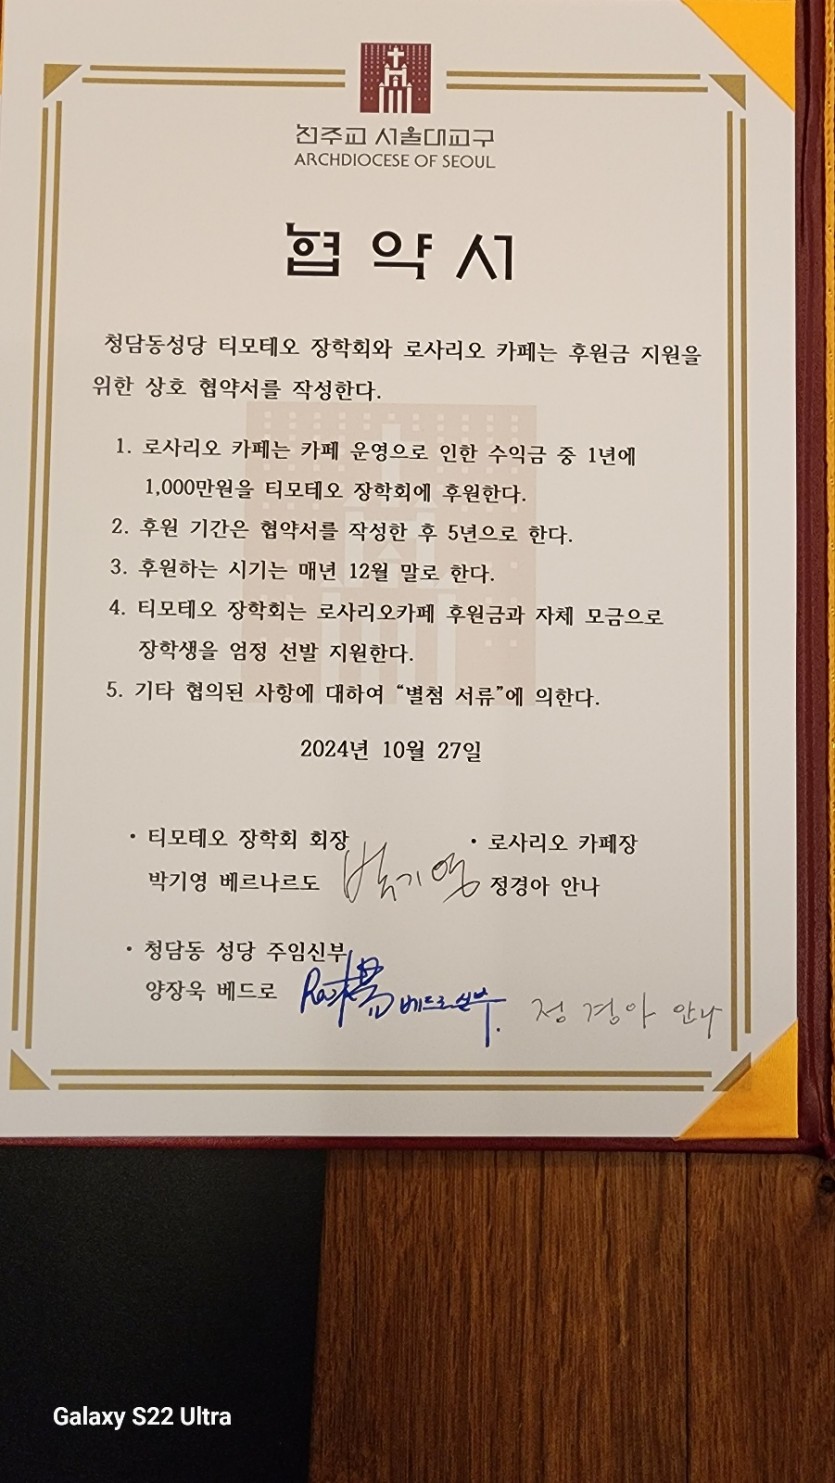 천주교 서울대교구
ARCHDIOCESE OF SEOUL
협약서
청담동성당 티모테오 장학회와 로사리오 카페는 후원금 지원을
위한 상호 협약서를 작성한다.
1. 로사리오 카페는 카페 운영으로 인한 수익금 중 1년에
1,000만원을 티모테오 장학회에 후원한다.
2. 후원 기간은 협약서를 작성한 후 5년으로 한다.
3. 후원하는 시기는 매년 12월 말로 한다.
4. 티모테오 장학회는 로사리오카페 후원금과 자체 모금으로
장학생을 엄정 선발 지원한다.
5. 기타 협의된 사항에 대하여 “별첨 서류”에 의한다.
2024년 10월 27일
· 티모테오 장학회 회장
박기영 베르나르도 박기영
· 로사리오 카페장
정경아 안나
· 청담동 성당 주임신부
양장욱 베드로 베드로신부.
정경아 안나
Galaxy S22 Ultra